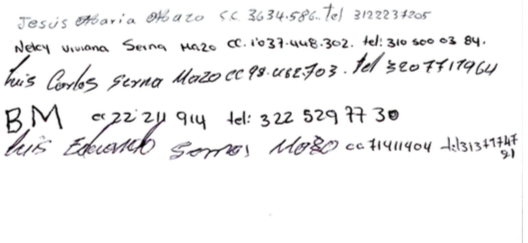 Jesús Maria Mazo C.C. 3634.586. tel 3122237205
Nelcy Viviana Serna Mazo CC. 1'037.448.302. tel: 310 500 03 84.
Luis Carlos Serna Mazo cc 98.482.703. tel 3207717964
BM cc 22 211 914 tel: 322 529 77 30
Luis Eduardo Sernas Mazo cc 71411404 tel 313 7747
91